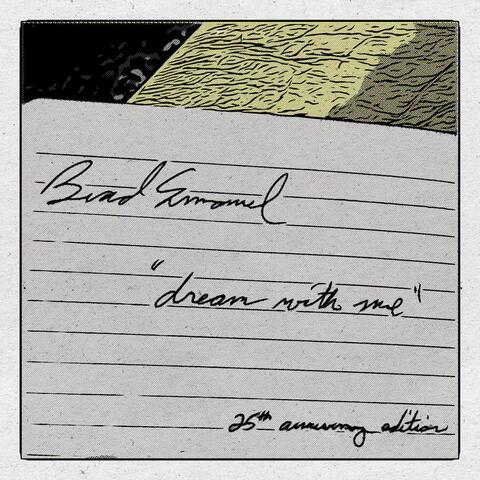 Brad Emanuel
"dream with me"
25th anniversary edition